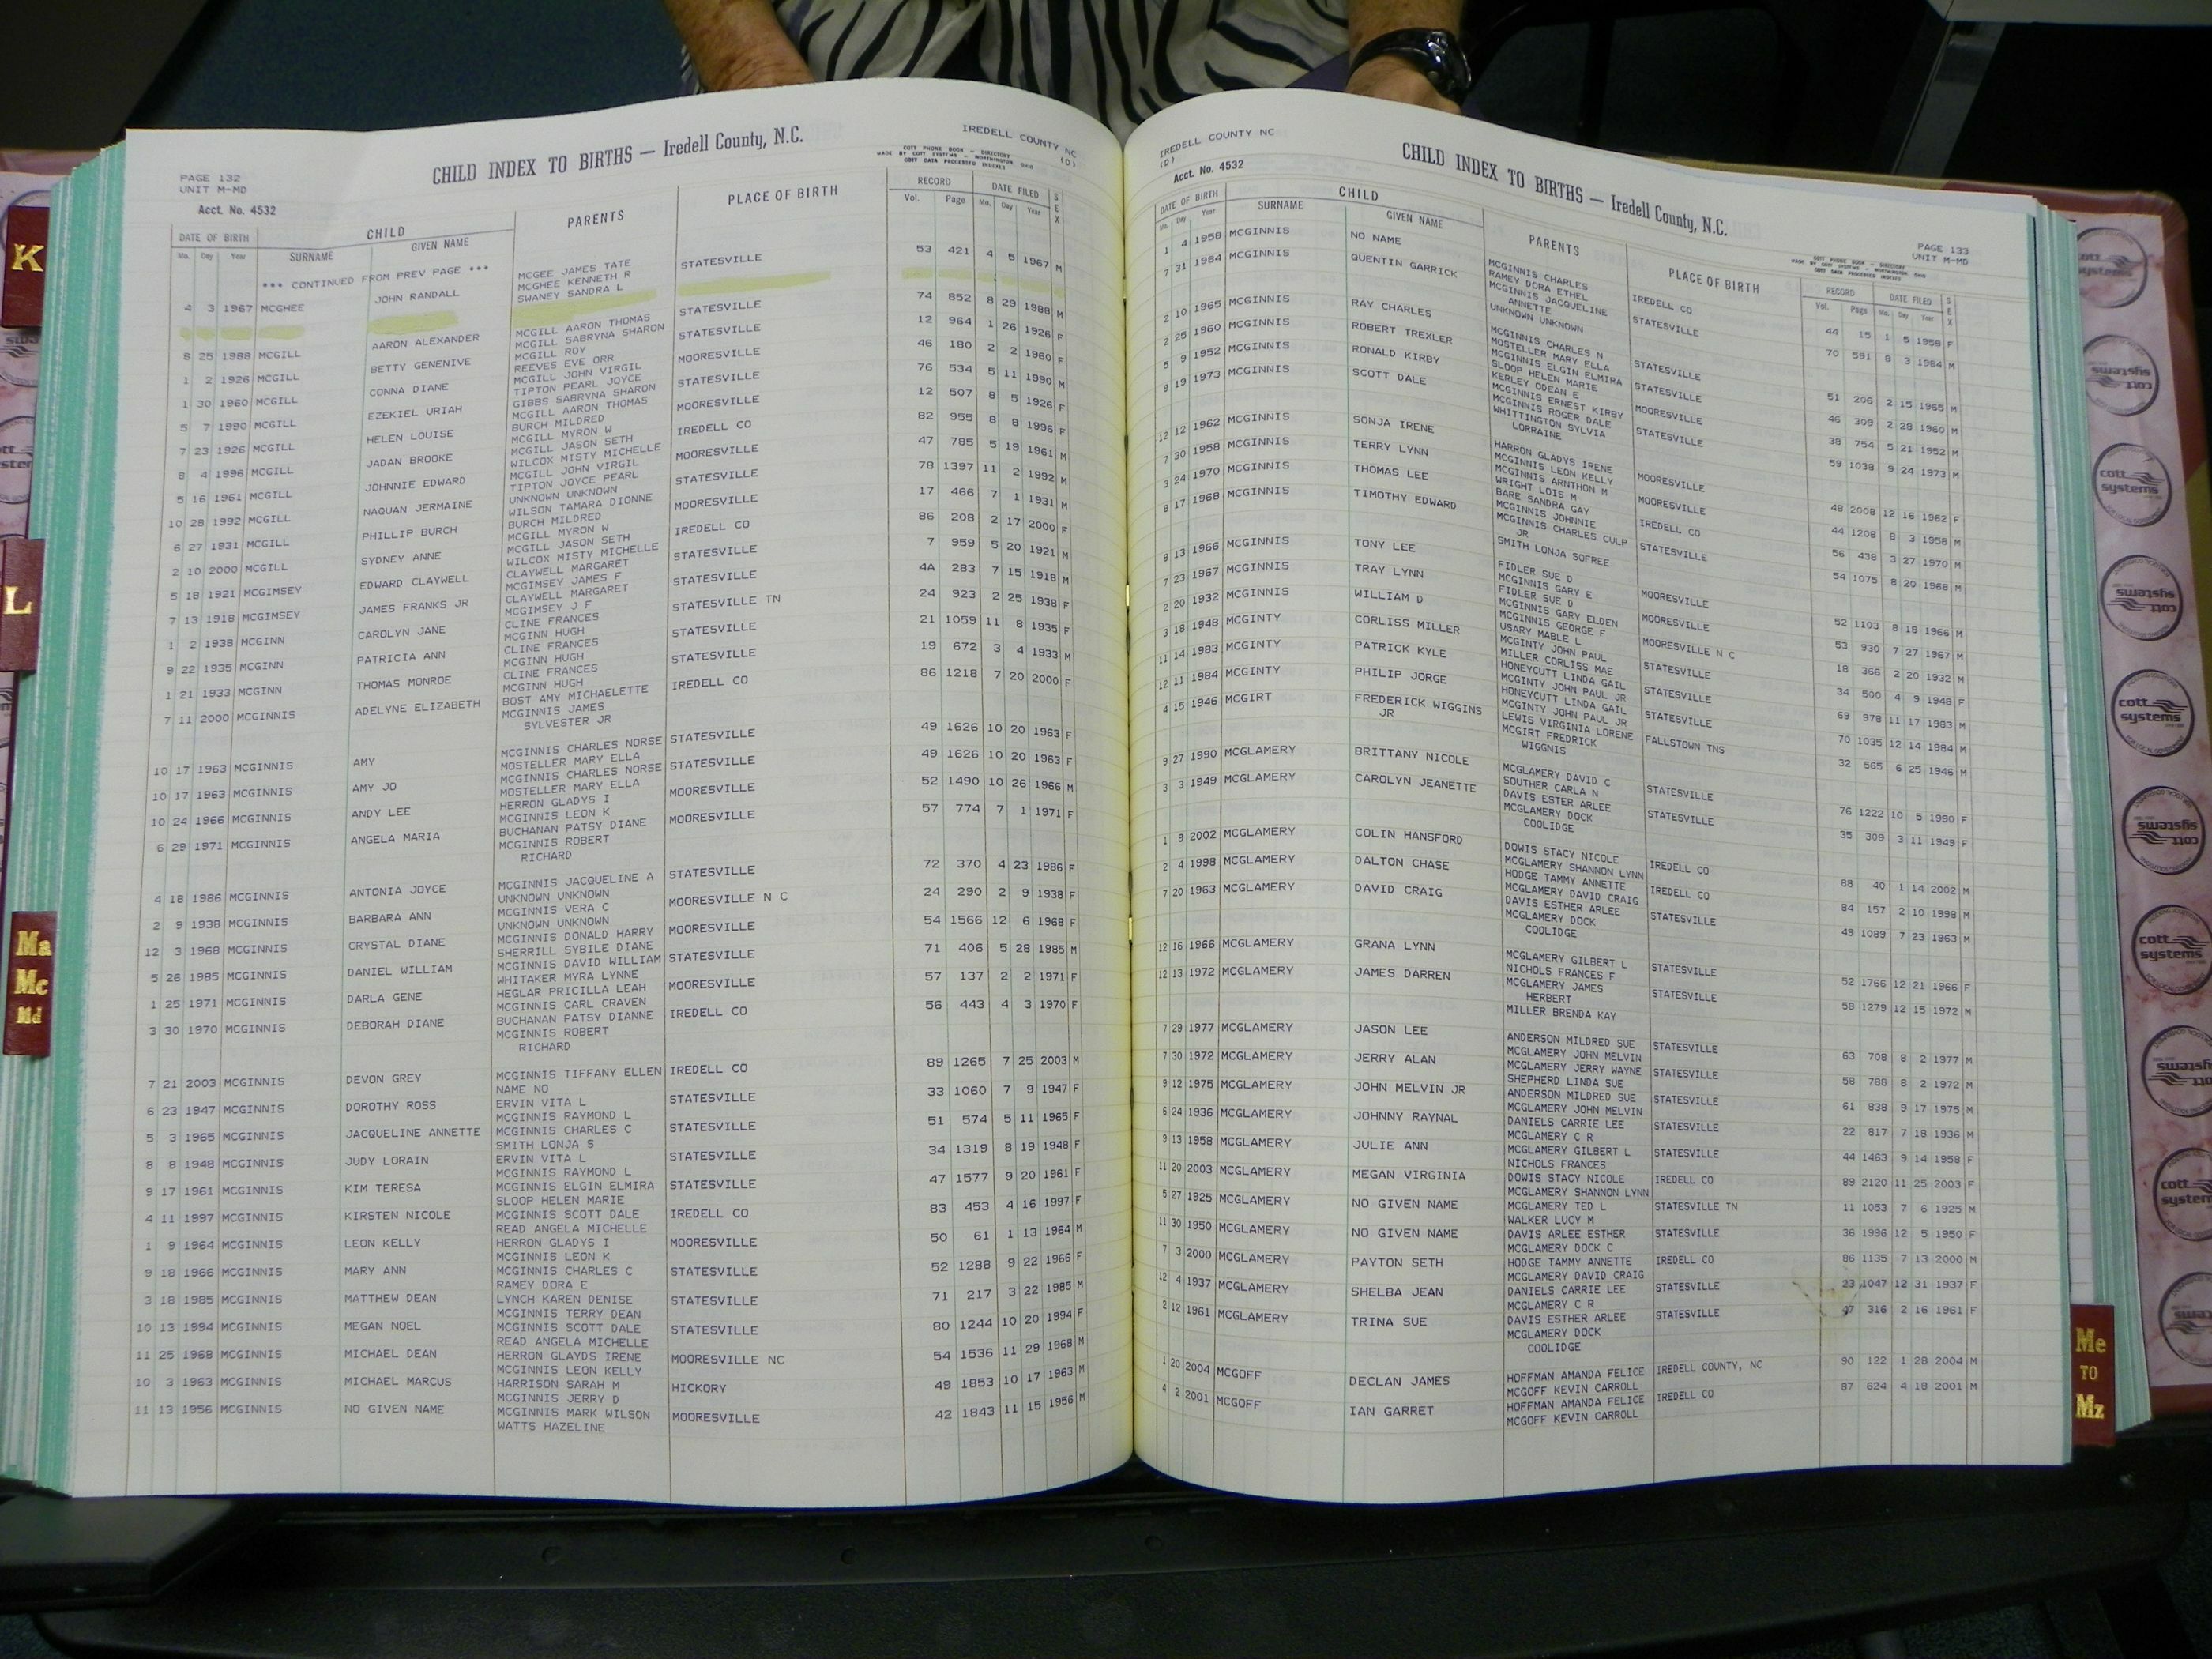 CHILD INDEX TO BIRTHS — Iredell County, N.C.
IREDELL COUNTY NC
(D)
COTT PHONE BOOK - DIRECTORY
MADE BY COTT SYSTEMS - WORTHINGTON, OHIO
COTT DATA PROCESSED INDEXES
PAGE 132
UNIT M-MD
Acct. No. 4532
DATE OF BIRTH CHILD PARENTS PLACE OF BIRTH RECORD DATE FILED SEX
Mo. Day Year SURNAME GIVEN NAME Vol. Page Mo. Day Year
*** CONTINUED FROM PREV PAGE ***
MCGEE JAMES TATE
4 3 1967 MCGHEE JOHN RANDALL MCGHEE KENNETH R STATESVILLE 53 421 4 5 1967 M
SWANEY SANDRA L
8 25 1988 MCGILL AARON ALEXANDER MCGILL AARON THOMAS STATESVILLE 74 852 8 29 1988 M
MCGILL SABRYNA SHARON
1 2 1926 MCGILL BETTY GENENIVE MCGILL ROY STATESVILLE 12 964 1 26 1926 F
REEVES EVE ORR
1 30 1960 MCGILL CONNA DIANE MCGILL JOHN VIRGIL MOORESVILLE 46 180 2 2 1960 F
TIPTON PEARL JOYCE
5 7 1990 MCGILL EZEKIEL URIAH GIBBS SABRYNA SHARON STATESVILLE 76 534 5 11 1990 M
MCGILL AARON THOMAS
7 23 1926 MCGILL HELEN LOUISE BURCH MILDRED MOORESVILLE 12 507 8 5 1926 F
MCGILL MYRON W
8 4 1996 MCGILL JADAN BROOKE MCGILL JASON SETH IREDELL CO 82 955 8 8 1996 F
WILCOX MISTY MICHELLE
5 16 1961 MCGILL JOHNNIE EDWARD MCGILL JOHN VIRGIL MOORESVILLE 47 785 5 19 1961 M
TIPTON JOYCE PEARL
10 28 1992 MCGILL NAQUAN JERMAINE UNKNOWN UNKNOWN STATESVILLE 78 1397 11 2 1992 M
WILSON TAMARA DIONNE
6 27 1931 MCGILL PHILLIP BURCH BURCH MILDRED MOORESVILLE 17 466 7 1 1931 M
MCGILL MYRON W
2 10 2000 MCGILL SYDNEY ANNE MCGILL JASON SETH IREDELL CO 86 208 2 17 2000 F
WILCOX MISTY MICHELLE
5 18 1921 MCGIMSEY EDWARD CLAYWELL CLAYWELL MARGARET STATESVILLE 7 959 5 20 1921 M
MCGIMSEY JAMES F
7 13 1918 MCGIMSEY JAMES FRANKS JR CLAYWELL MARGARET STATESVILLE 4A 283 7 15 1918 M
MCGIMSEY J F
1 2 1938 MCGINN CAROLYN JANE CLINE FRANCES STATESVILLE TN 24 923 2 25 1938 F
MCGINN HUGH
9 22 1935 MCGINN PATRICIA ANN CLINE FRANCES STATESVILLE 21 1059 11 8 1935 F
MCGINN HUGH
1 21 1933 MCGINN THOMAS MONROE CLINE FRANCES STATESVILLE 19 672 3 4 1933 M
MCGINN HUGH
7 11 2000 MCGINNIS ADELYNE ELIZABETH BOST AMY MICHAELETTE IREDELL CO 86 1218 7 20 2000 F
MCGINNIS JAMES
SYLVESTER JR
10 17 1963 MCGINNIS AMY MCGINNIS CHARLES NORSE STATESVILLE 49 1626 10 20 1963 F
MOSTELLER MARY ELLA
10 17 1963 MCGINNIS AMY JO MCGINNIS CHARLES NORSE STATESVILLE 49 1626 10 20 1963 F
MOSTELLER MARY ELLA
10 24 1966 MCGINNIS ANDY LEE HERRON GLADYS I MOORESVILLE 52 1490 10 26 1966 M
MCGINNIS LEON K
6 29 1971 MCGINNIS ANGELA MARIA BUCHANAN PATSY DIANE MOORESVILLE 57 774 7 1 1971 F
MCGINNIS ROBERT
RICHARD
4 18 1986 MCGINNIS ANTONIA JOYCE MCGINNIS JACQUELINE A STATESVILLE 72 370 4 23 1986 F
UNKNOWN UNKNOWN
2 9 1938 MCGINNIS BARBARA ANN MCGINNIS VERA C MOORESVILLE N C 24 290 2 9 1938 F
UNKNOWN UNKNOWN
12 3 1968 MCGINNIS CRYSTAL DIANE MCGINNIS DONALD HARRY MOORESVILLE 54 1566 12 6 1968 F
SHERRILL SYBILE DIANE
5 26 1985 MCGINNIS DANIEL WILLIAM MCGINNIS DAVID WILLIAM STATESVILLE 71 406 5 28 1985 M
WHITAKER MYRA LYNNE
1 25 1971 MCGINNIS DARLA GENE HEGLAR PRICILLA LEAH MOORESVILLE 57 137 2 2 1971 F
MCGINNIS CARL CRAVEN
3 30 1970 MCGINNIS DEBORAH DIANE BUCHANAN PATSY DIANNE IREDELL CO 56 443 4 3 1970 F
MCGINNIS ROBERT
RICHARD
7 21 2003 MCGINNIS DEVON GREY MCGINNIS TIFFANY ELLEN IREDELL CO 89 1265 7 25 2003 M
NAME NO
6 23 1947 MCGINNIS DOROTHY ROSS ERVIN VITA L STATESVILLE 33 1060 7 9 1947 F
MCGINNIS RAYMOND L
5 3 1965 MCGINNIS JACQUELINE ANNETTE MCGINNIS CHARLES C STATESVILLE 51 574 5 11 1965 F
SMITH LONJA S
8 8 1948 MCGINNIS JUDY LORAIN ERVIN VITA L STATESVILLE 34 1319 8 19 1948 F
MCGINNIS RAYMOND L
9 17 1961 MCGINNIS KIM TERESA MCGINNIS ELGIN ELMIRA STATESVILLE 47 1577 9 20 1961 F
SLOOP HELEN MARIE
4 11 1997 MCGINNIS KIRSTEN NICOLE MCGINNIS SCOTT DALE IREDELL CO 83 453 4 16 1997 F
READ ANGELA MICHELLE
1 9 1964 MCGINNIS LEON KELLY HERRON GLADYS I MOORESVILLE 50 61 1 13 1964 M
MCGINNIS LEON K
9 18 1966 MCGINNIS MARY ANN MCGINNIS CHARLES C STATESVILLE 52 1288 9 22 1966 F
RAMEY DORA E
3 18 1985 MCGINNIS MATTHEW DEAN LYNCH KAREN DENISE STATESVILLE 71 217 3 22 1985 M
MCGINNIS TERRY DEAN
10 13 1994 MCGINNIS MEGAN NOEL MCGINNIS SCOTT DALE STATESVILLE 80 1244 10 20 1994 F
READ ANGELA MICHELLE
11 25 1968 MCGINNIS MICHAEL DEAN HERRON GLAYDS IRENE MOORESVILLE NC 54 1536 11 29 1968 M
MCGINNIS LEON KELLY
10 3 1963 MCGINNIS MICHAEL MARCUS HARRISON SARAH M HICKORY 49 1853 10 17 1963 M
MCGINNIS JERRY D
11 13 1956 MCGINNIS NO GIVEN NAME MCGINNIS MARK WILSON MOORESVILLE 42 1843 11 15 1956 M
WATTS HAZELINE
IREDELL COUNTY NC
(D)
Acct. No. 4532
CHILD INDEX TO BIRTHS — Iredell County, N.C.
PAGE 133
UNIT M-MD
COTT PHONE BOOK - DIRECTORY
MADE BY COTT SYSTEMS - WORTHINGTON, OHIO
COTT DATA PROCESSED INDEXES
DATE OF BIRTH CHILD PARENTS PLACE OF BIRTH RECORD DATE FILED SEX
Mo. Day Year SURNAME GIVEN NAME Vol. Page Mo. Day Year
1 4 1958 MCGINNIS NO NAME MCGINNIS CHARLES IREDELL CO 44 15 1 5 1958 F
RAMEY DORA ETHEL
7 31 1984 MCGINNIS QUENTIN GARRICK MCGINNIS JACQUELINE STATESVILLE 70 591 8 3 1984 M
ANNETTE
UNKNOWN UNKNOWN
2 10 1965 MCGINNIS RAY CHARLES MCGINNIS CHARLES N STATESVILLE 51 206 2 15 1965 M
MOSTELLER MARY ELLA
2 25 1960 MCGINNIS ROBERT TREXLER MCGINNIS ELGIN ELMIRA STATESVILLE 46 309 2 28 1960 M
SLOOP HELEN MARIE
5 9 1952 MCGINNIS RONALD KIRBY KERLEY ODEAN E MOORESVILLE 38 754 5 21 1952 M
MCGINNIS ERNEST KIRBY
9 19 1973 MCGINNIS SCOTT DALE MCGINNIS ROGER DALE STATESVILLE 59 1038 9 24 1973 M
WHITTINGTON SYLVIA
LORRAINE
12 12 1962 MCGINNIS SONJA IRENE HARRON GLADYS IRENE MOORESVILLE 48 2008 12 16 1962 F
MCGINNIS LEON KELLY
7 30 1958 MCGINNIS TERRY LYNN MCGINNIS ARNTHON M MOORESVILLE 44 1208 8 3 1958 M
WRIGHT LOIS M
3 24 1970 MCGINNIS THOMAS LEE BARE SANDRA GAY IREDELL CO 56 438 3 27 1970 M
MCGINNIS JOHNNIE
8 17 1968 MCGINNIS TIMOTHY EDWARD MCGINNIS CHARLES CULP STATESVILLE 54 1075 8 20 1968 M
JR
SMITH LONJA SOFREE
8 13 1966 MCGINNIS TONY LEE FIDLER SUE D MOORESVILLE 52 1103 8 18 1966 M
MCGINNIS GARY E
7 23 1967 MCGINNIS TRAY LYNN FIDLER SUE D MOORESVILLE 53 930 7 27 1967 M
MCGINNIS GARY ELDEN
2 20 1932 MCGINNIS WILLIAM D MCGINNIS GEORGE F MOORESVILLE N C 18 366 2 20 1932 M
USARY MABLE L
3 18 1948 MCGINTY CORLISS MILLER MCGINTY JOHN PAUL STATESVILLE 34 500 4 9 1948 F
MILLER CORLISS MAE
11 14 1983 MCGINTY PATRICK KYLE HONEYCUTT LINDA GAIL STATESVILLE 69 978 11 17 1983 M
MCGINTY JOHN PAUL JR
12 11 1984 MCGINTY PHILIP JORGE HONEYCUTT LINDA GAIL STATESVILLE 70 1035 12 14 1984 M
MCGINTY JOHN PAUL JR
4 15 1946 MCGIRT FREDERICK WIGGINS LEWIS VIRGINIA LORENE FALLSTOWN TNS 32 565 6 25 1946 M
JR MCGIRT FREDRICK
WIGGNIS
9 27 1990 MCGLAMERY BRITTANY NICOLE MCGLAMERY DAVID C STATESVILLE 76 1222 10 5 1990 F
SOUTHER CARLA N
3 3 1949 MCGLAMERY CAROLYN JEANETTE DAVIS ESTER ARLEE STATESVILLE 35 309 3 11 1949 F
MCGLAMERY DOCK
COOLIDGE
1 9 2002 MCGLAMERY COLIN HANSFORD DOWIS STACY NICOLE IREDELL CO 88 40 1 14 2002 M
MCGLAMERY SHANNON LYNN
2 4 1998 MCGLAMERY DALTON CHASE HODGE TAMMY ANNETTE IREDELL CO 84 157 2 10 1998 M
MCGLAMERY DAVID CRAIG
7 20 1963 MCGLAMERY DAVID CRAIG DAVIS ESTHER ARLEE STATESVILLE 49 1089 7 23 1963 M
MCGLAMERY DOCK
COOLIDGE
12 16 1966 MCGLAMERY GRANA LYNN MCGLAMERY GILBERT L STATESVILLE 52 1766 12 21 1966 F
NICHOLS FRANCES F
12 13 1972 MCGLAMERY JAMES DARREN MCGLAMERY JAMES STATESVILLE 58 1279 12 15 1972 M
HERBERT
MILLER BRENDA KAY
7 29 1977 MCGLAMERY JASON LEE ANDERSON MILDRED SUE STATESVILLE 63 708 8 2 1977 M
MCGLAMERY JOHN MELVIN
7 30 1972 MCGLAMERY JERRY ALAN MCGLAMERY JERRY WAYNE STATESVILLE 58 788 8 2 1972 M
SHEPHERD LINDA SUE
9 12 1975 MCGLAMERY JOHN MELVIN JR ANDERSON MILDRED SUE STATESVILLE 61 838 9 17 1975 M
MCGLAMERY JOHN MELVIN
6 24 1936 MCGLAMERY JOHNNY RAYNAL DANIELS CARRIE LEE STATESVILLE 22 817 7 18 1936 M
MCGLAMERY C R
9 13 1958 MCGLAMERY JULIE ANN MCGLAMERY GILBERT L STATESVILLE 44 1463 9 14 1958 F
NICHOLS FRANCES
11 20 2003 MCGLAMERY MEGAN VIRGINIA DOWIS STACY NICOLE IREDELL CO 89 2120 11 25 2003 F
MCGLAMERY SHANNON LYNN
5 27 1925 MCGLAMERY NO GIVEN NAME MCGLAMERY TED L STATESVILLE TN 11 1053 7 6 1925 M
WALKER LUCY M
11 30 1950 MCGLAMERY NO GIVEN NAME DAVIS ARLEE ESTHER STATESVILLE 36 1996 12 5 1950 F
MCGLAMERY DOCK C
7 3 2000 MCGLAMERY PAYTON SETH HODGE TAMMY ANNETTE IREDELL CO 86 1135 7 13 2000 M
MCGLAMERY DAVID CRAIG
12 4 1937 MCGLAMERY SHELBA JEAN DANIELS CARRIE LEE STATESVILLE 23 1047 12 31 1937 F
MCGLAMERY C R
2 12 1961 MCGLAMERY TRINA SUE DAVIS ESTHER ARLEE STATESVILLE 47 316 2 16 1961 F
MCGLAMERY DOCK
COOLIDGE
1 20 2004 MCGOFF DECLAN JAMES HOFFMAN AMANDA FELICE IREDELL COUNTY, NC 90 122 1 28 2004 M
MCGOFF KEVIN CARROLL
4 2 2001 MCGOFF IAN GARRET HOFFMAN AMANDA FELICE IREDELL CO 87 624 4 18 2001 M
MCGOFF KEVIN CARROLL
K
L
Ma
Mc
Md
Me
TO
Mz
cott
systems
FOR LOCAL GOVERNMENT